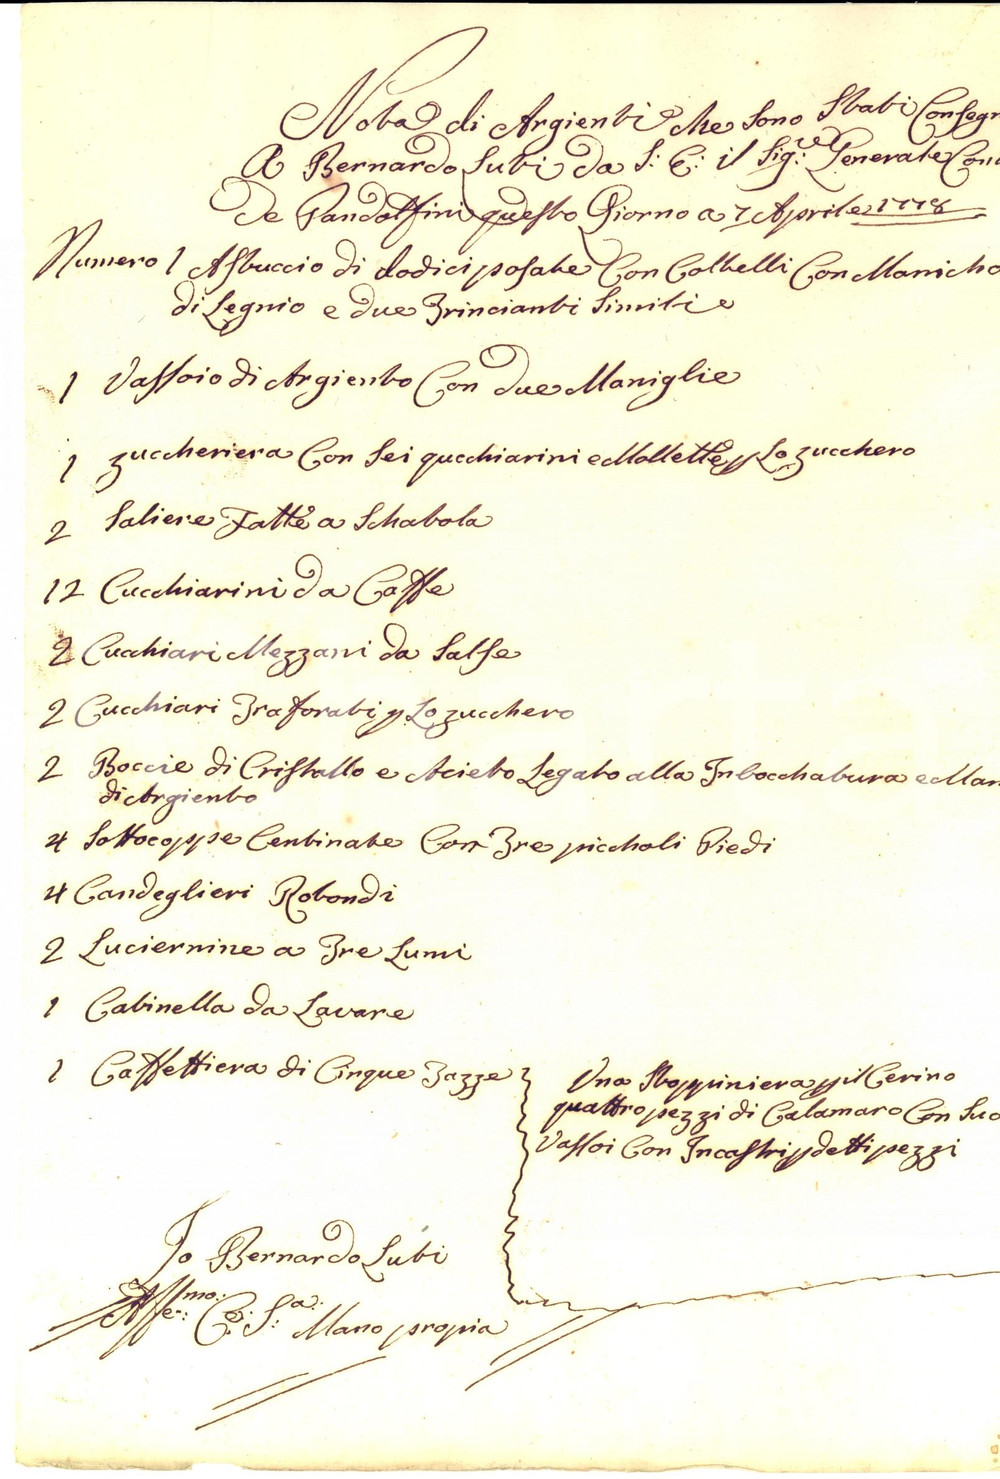 Nota di Argienti che sono Stati Consegn
A Bernardo Lubi da S: E: il Sig:re Generale Con
De Pandolfini questo Giorno a 7 Aprile 1778
Numero 1 Astuccio di dodici posate Con Coltelli Con Manicho
di Legnio e due Trincianti Simili e
1 Vassoio di Argiento Con due Maniglie
1 zuccheriera Con Sei quchiarini e Mollette p Lo zucchero
2 Saliere Fatte a Schatola
12 Cucchiarini da Caffe
2 Cuchiari Mezzani da Salse
2 Cucchiari Traforati p Lo zucchero
2 Boccie di Cristallo e Acieto Legato alla Inbocchatura e Man
di Argiento
4 Sottocoppe Centinate Con Tre piccholi Piedi
4 Candeglieri Rotondi
2 Luciernine a Tre Lumi
1 Catinella da Lavare
1 Caffettiera di Cinque Tazze
Una Stoppiniera p il Cerino
quattro pezzi di Calamaro Con Suo
Vassoi Con Incastri p detti pezzi
Io Bernardo Lubi
Affe:mo: C: S:a: Mano propia